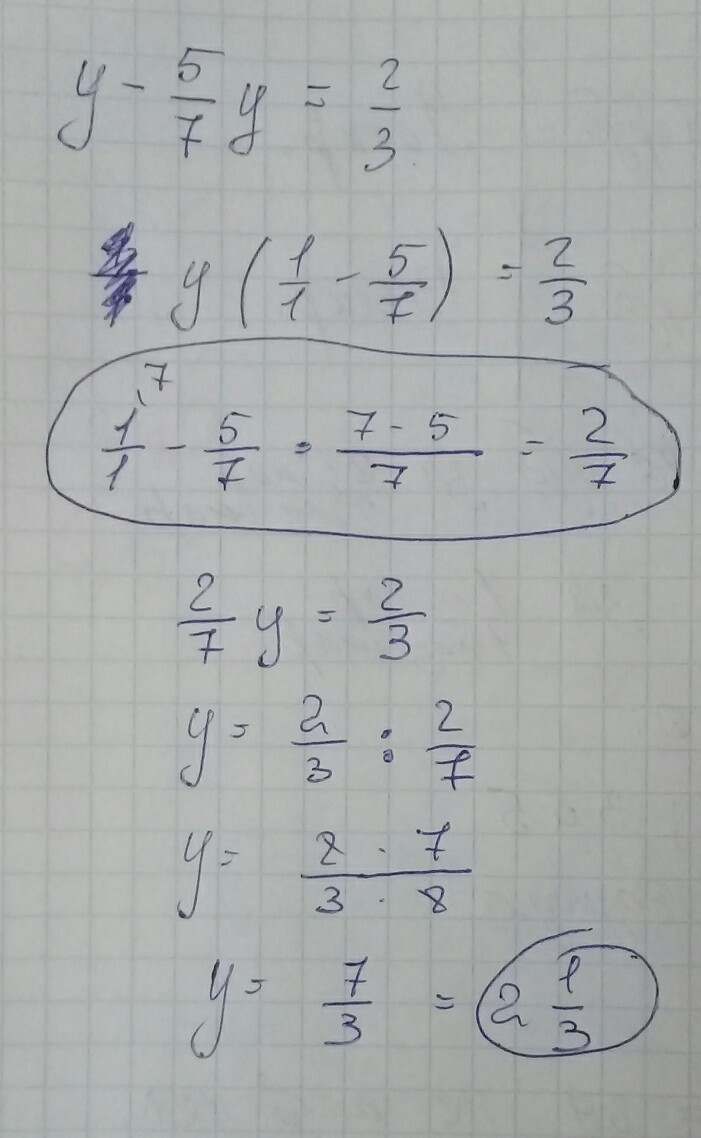 y - 5/7 y = 2/3
y (1/1 - 5/7) = 2/3
1/1 ,7 - 5/7 = (7 - 5)/7 = 2/7
2/7 y = 2/3
y = 2/3 : 2/7
y = (2 · 7)/(3 · 2)
y = 7/3 = 2 1/3